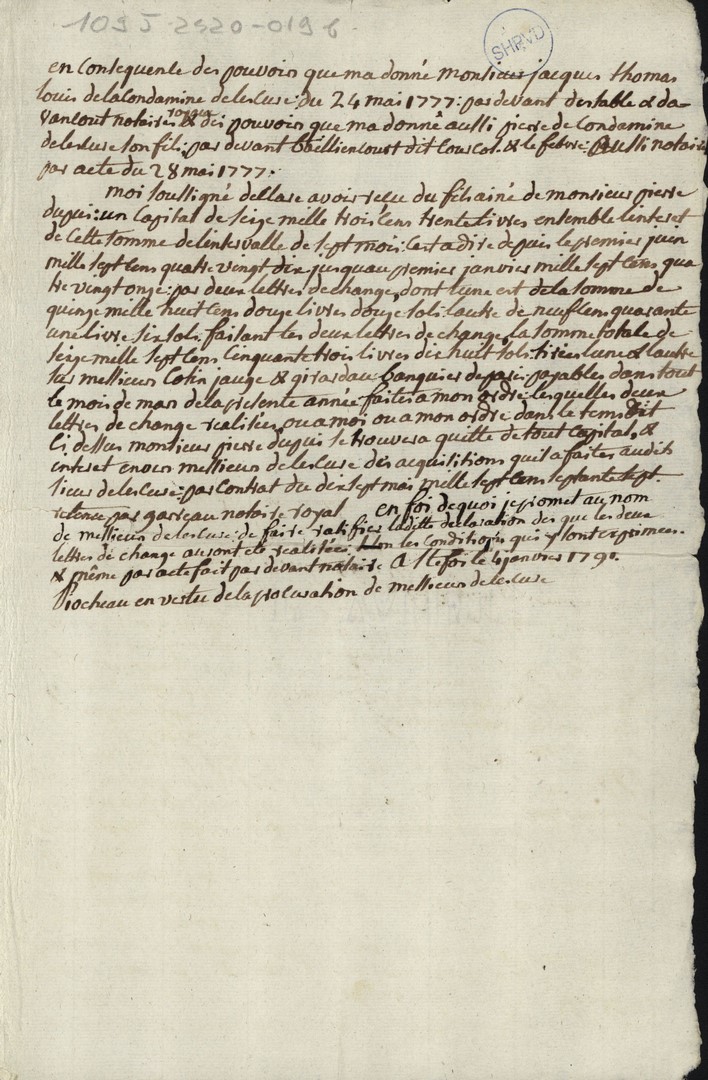 1095 J-2920-019 b
SHPVD
en consequence des pouvoirs que ma donné monsieur jacques thomas
louis de la Condamine de lescure: du 24 mai 1777: par devant destable & da-
vancout notaires royaux & des pouvoirs que ma donnê aussi pierre de Condamine
de lescure son fils: par devant bailliencourt dit Courcol. & le febvre: Aussi notaires
par acte du 28 mai 1777:
moi soussigné declare avoir reçu du fils ainé de monsieur pierre
dupui: un Capital de seize mille trois cens trente livres ensemble linteret
de Cette somme de lintervalle de sept mois: cest a dire depuis le premier juin
mille sept cens quatre vingt dix jusquau premier janvier mille sept cens qua
tre vingt onze: par deux lettres de change, dont lune est de la somme de
quinze mille huit cens douze livres douze sols: lautre de neuf cens quarante
une livre six sols. faisant les deux lettres de change, la somme totale de
seize mille sept cens Cinquante trois livres dix huit sols: tirées lune & lautre
sur messieurs Cotin jauge & girardau banquier de paris: payables dans tout
le mois de mars de la presente année faites a mon ordre: lesquelles deux
lettres de change realisées, ou a moi ou a mon ordre dans le tems dit
Ci dessus monsieur pierre dupuis se trouvera quitte de tout Capital, &
interet envers messieurs de lescure des acquisitions quil a faites audits
sieur de lescure: par contrat du dix sept mai mille sept cens septante sept.
retenu par garreau notaire royal en foi de quoi je promet au nom
de messieurs de lescure: de faire ratifier la ditte declaration des que les deux
lettres de change auront eté realisées, selon les conditions qui y sont exprimées.
& même par acte fait par devant notaire A ste foi le 4 janvier 1791.
Piocheau en vertu de la procuration de messieurs de lescure